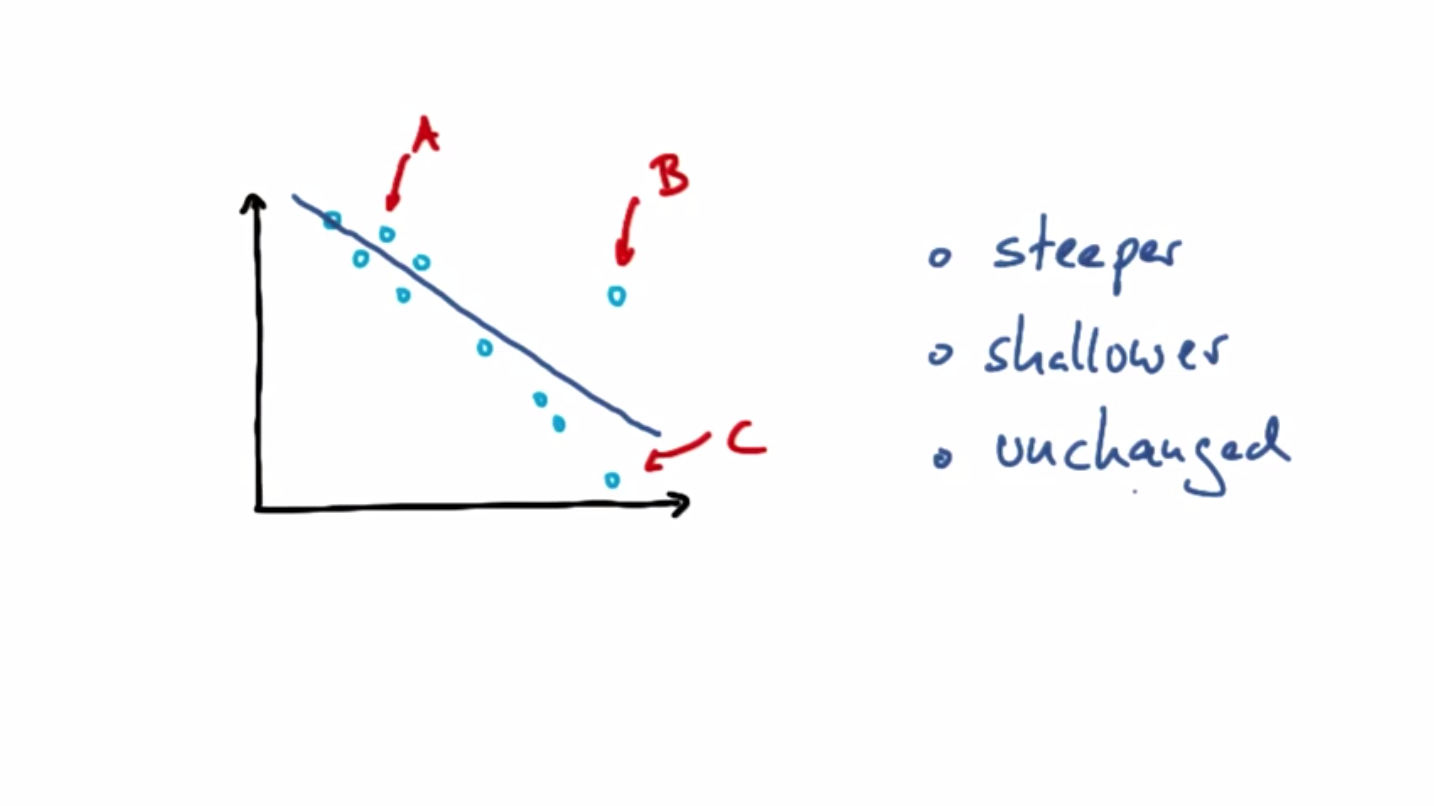 A
B
steeper
shallower
unchanged
C